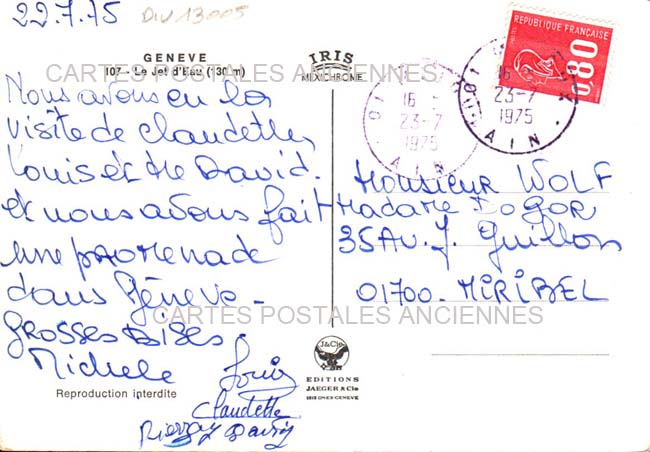 22.7.75
DIV 13005
GENEVE
107 - Le Jet d'Eau (130 m)
IRIS
MEXICHROME
CARTES POSTALES ANCIENNES
REPUBLIQUE FRANÇAISE
0,80
01
16
23-7
1975
AIN
01
16
23-7
1975
AIN
Nous avons eu la
visite de Claudette,
Louis et David.
et nous avons fait
une promenade
dans Génève -
GROSSES BISES.
Michele
Louis
Claudette
David
Monsieur WOLF
Madame DOGOR
35 AV. J. Guillon
01700. MIRIBEL
CARTES POSTALES ANCIENNES
J&Cie
EDITIONS
JAEGER & Cie
GENEVE
Reproduction interdite